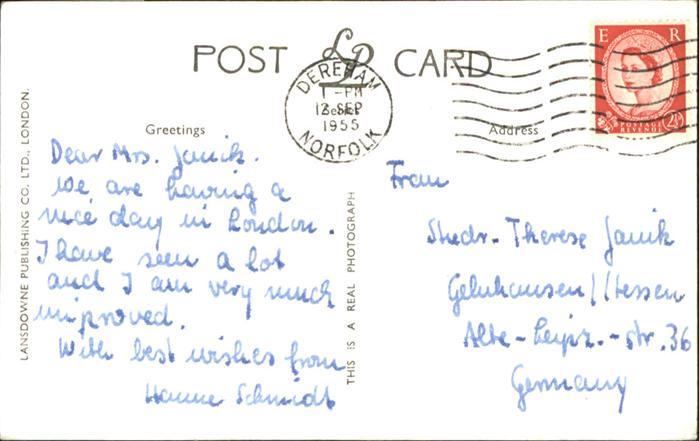 POST CARD
LP
Series
DEREHAM
1 - PM
12 SEP
1955
NORFOLK
E R
POSTAGE
REVENUE
2½D
Greetings
Address
Dear Mrs. Janik.
We are having a
nice day in London.
I have seen a lot
and I am very much
improved.
With best wishes from
Hanne Schmidt
Frau
Stud. Therese Janik
Gelnhausen//Hessen
Alte-Leipz.-str. 36
Germany
LANSDOWNE PUBLISHING CO. LTD., LONDON.
THIS IS A REAL PHOTOGRAPH